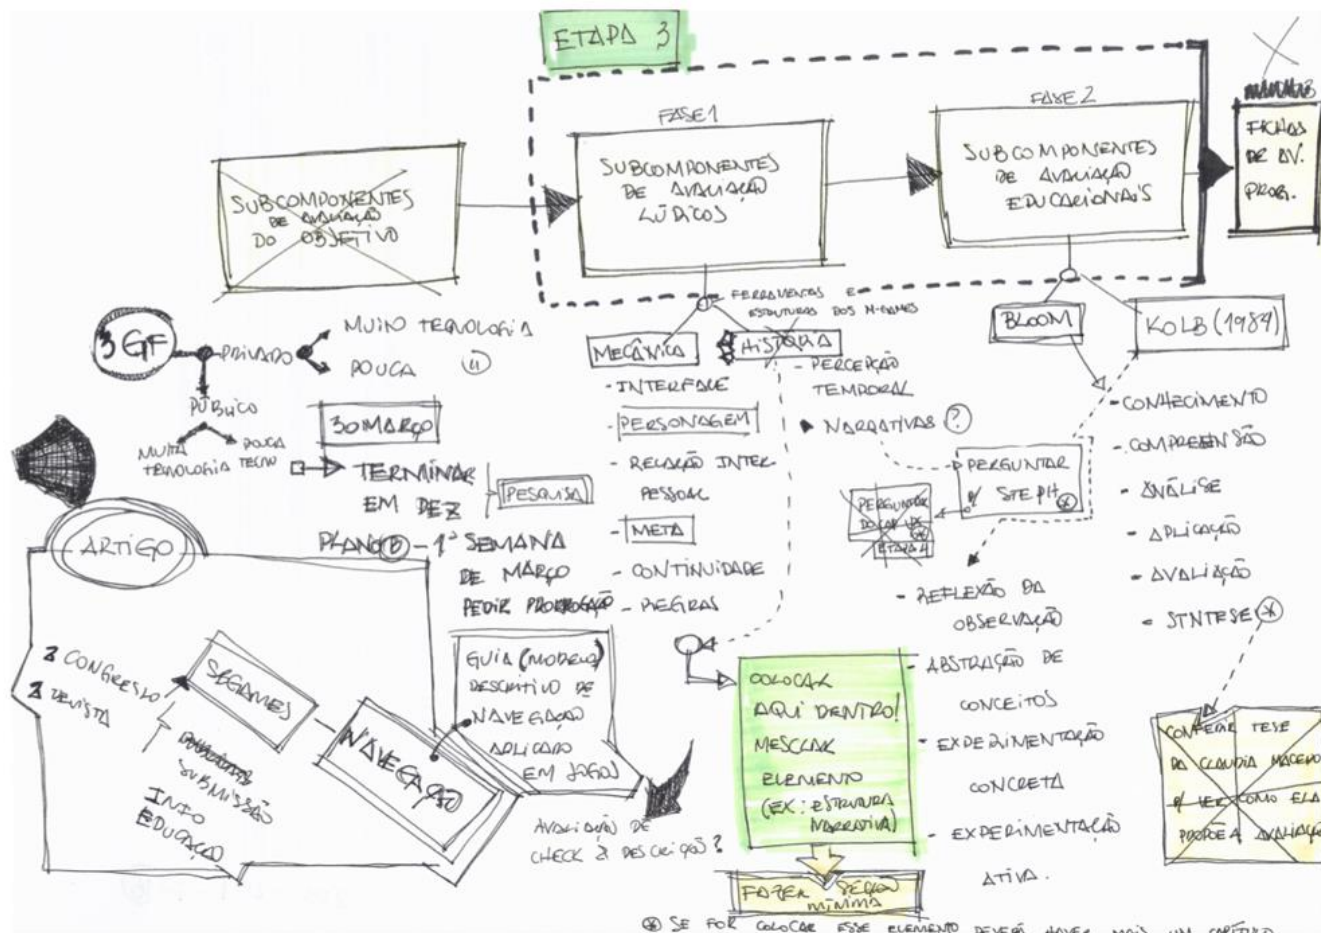 ETAPA 3
FASE 1
FASE 2
SUBCOMPONENTES
DE AVALIAÇÃO
DO OBJETIVO
SUBCOMPONENTES
DE AVALIAÇÃO
LÚDICOS
SUBCOMPONENTES
DE AVALIAÇÃO
EDUCACIONAIS
FICHAS
DE AV.
PROG.
FERRAMENTAS E
ESTRUTURAS DOS M-GAMES
3 GF
PRIVADO
MUITO TECNOLOGIA
POUCA
PÚBLICO
MUITA
TECNOLOGIA
POUCA
TECNO
30 MARÇO
TERMINAR
EM DEZ
PESQUISA
PLANO B - 1ª SEMANA
DE MARÇO
PEDIR PRORROGAÇÃO
MECÂNICA
- INTERFACE
- PERSONAGEM
- RELAÇÃO INTER
PESSOAL
- META
- CONTINUIDADE
- REGRAS
HISTÓRIA
- PERCEPÇÃO
TEMPORAL
NARRATIVAS ?
BLOOM
KOLB (1984)
- CONHECIMENTO
- COMPREENSÃO
- ANÁLISE
- APLICAÇÃO
- AVALIAÇÃO
- SÍNTESE *
PERGUNTAR
P/ STEPH *
PERGUNTAR
ETAPA 4
- REFLEXÃO DA
OBSERVAÇÃO
- ABSTRAÇÃO DE
CONCEITOS
- EXPERIMENTAÇÃO
CONCRETA
- EXPERIMENTAÇÃO
ATIVA.
ARTIGO
2 CONGRESSO
2 REVISTA
SBGAMES
SUBMISSÃO
INFO
EDUCAÇÃO
NAVEGAÇÃO
GUIA (MODELO)
DESCRITIVO DE
NAVEGAÇÃO
APLICADO
EM JOGOS
AVALIAÇÃO DE
CHECK & DESCRIÇÃO?
COLOCAR
AQUI DENTRO!
MESCLAR
ELEMENTO
(EX: ESTRUTURA
NARRATIVA)
FAZER SEÇÃO
MÍNIMA
CONFERIR TESE
DA CLAUDIA MACEDO
P/ VER COMO ELA
PROPÕE A AVALIAÇÃO
* SE FOR COLOCAR ESSE ELEMENTO DEVERÁ HAVER MAIS UM CAPÍTULO